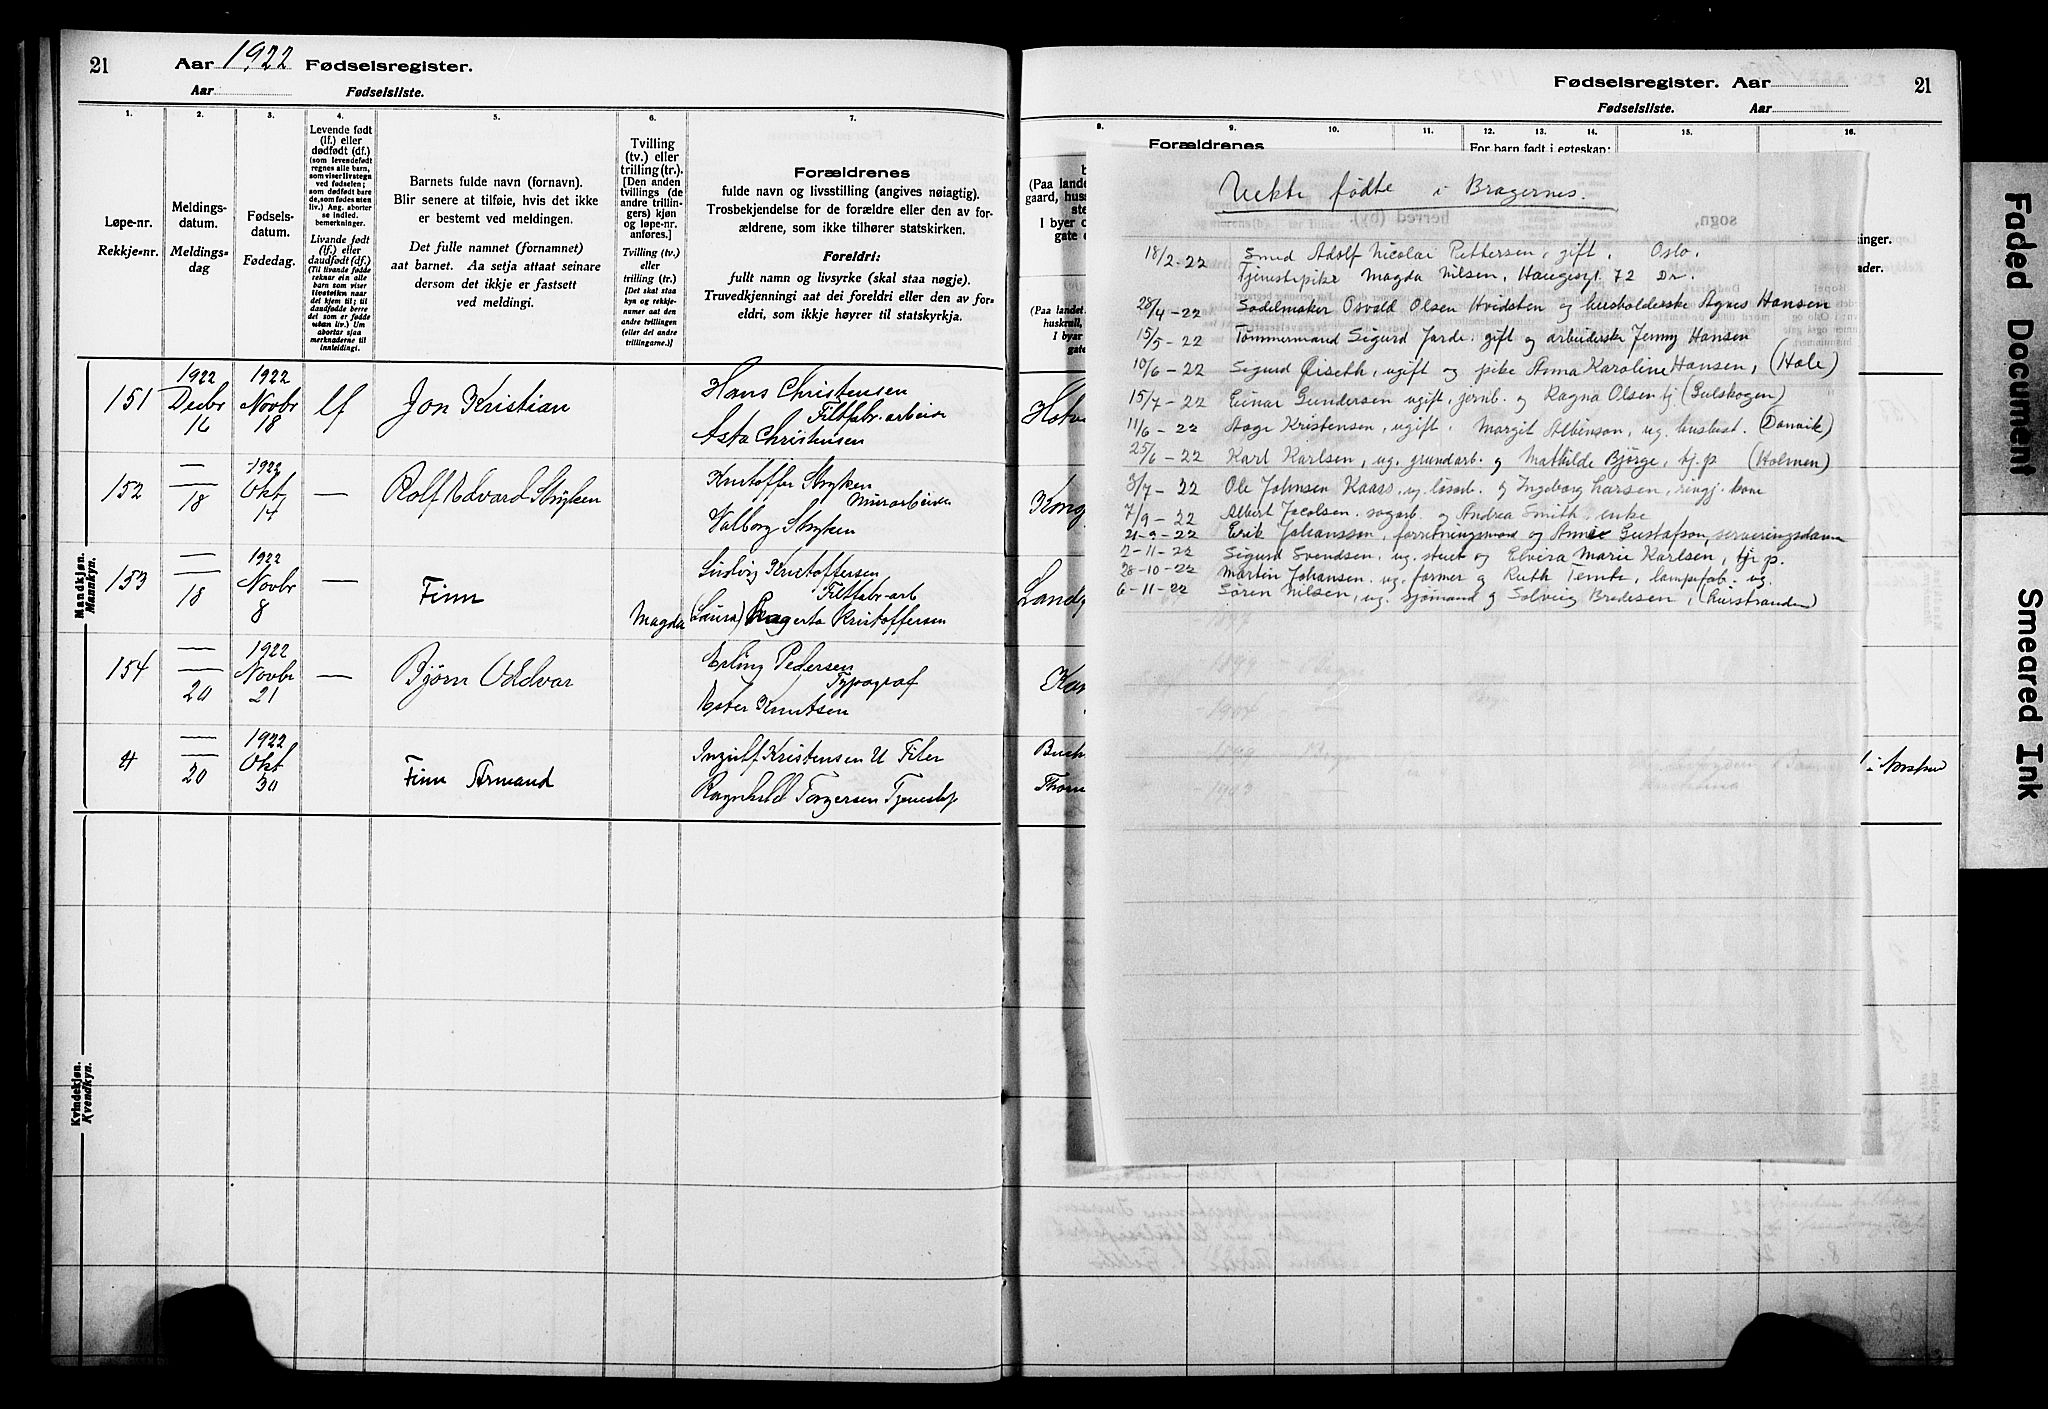 21 Aar 1922 Fødselsregister.
Aar Fødselsliste.
1. 2. 3. 4. 5. 6. 7.
Løpe-nr.
Rekkje-nr.
Meldings-
datum.
Meldings-
dag
Fødsels-
datum.
Fødedag.
Levende født
(lf.) eller
dødfødt (df.)
(som levendefødt
regnes alle barn,
som viser livstegn
ved fødselen;
som dødfødt bare
de, som fødes uten
liv.) Ang. aborter
se indled.
bemerkninger.
Livande født
(lf.) eller
daudfødt (df.)
(Til livande fødde
reknar ein alle
barn som viser
livsteikn naar
det kjem til; til
daudfødde berre
det som er fødde
utan liv.) Um
abortar sjaa
merknaderne til
innleidingi.
Barnets fulde navn (fornavn).
Blir senere at tilføie, hvis det ikke
er bestemt ved meldingen.
Det fulle namnet (fornamnet)
aat barnet. Aa setja attaat seinare
dersom det ikkje er fastsett
ved meldingi.
Tvilling
(tv.) eller
trilling (tr.).
[Den anden
tvillings (de
andre trillin-
gers) kjøn
og løpe-nr.
anføres.]
Tvilling (tv.)
eller
trilling (tr.)
[Det skal staa
kyn og rekkje-
numer aat den
andre tvillingen
(eller dei andre
trillingarne.)]
Forældrenes
fulde navn og livsstilling (angives nøiagtig).
Trosbekjendelse for de forældre eller den av for-
ældrene, som ikke tilhører statskirken.
Foreldri:
fullt namn og livsyrke (skal staa nøgje).
Truvedkjenningi aat dei foreldri eller den av for-
eldri, som ikkje høyrer til statskyrkja.
Mandkjøn.
Mannkyn.
151 1922 Decbr 16 1922 Novbr 18 lf Jon Kristian Hans Christensen
Filtfabr. arbeider
Asta Christensen
152 — 18 1922 Okt 14 — Rolf Edvard Stryken Kristoffer Stryken
Murarbeider
Valborg Stryken
153 — 18 1922 Novbr 8 — Finn Ludvig Kristoffersen
Filtfabr. arb
Magda (Laura) Kristoffersen
154 — 20 1922 Novbr 21 — Bjørn Oddvar Erling Pedersen
Typograf
Ester Knutsen
4 — 20 1922 Okt 30 Finn Armand Ingulf Kristensen U Filer
Ragnhild Torgersen Tjenestep
Kvindekjøn.
Kvendkyn.
Fødselsregister. Aar 21
Fødselsliste. Aar
8. 9. 10. 11. 12. 13. 14. 15. 16.
Forældrenes
For barn født i egteskap:
(Paa lande
gaard, hus
I byer
gate
(Paa landet
huskrull,
I byar
gate
Uekte fødte i Bragernes.
18/2-22 Smed Adolf Nicolai Pettersen, gift, Oslo.
Tjenestepike Magda Nilsen, Haugesgt. 72 Dr.
28/4-22 Sadelmaker Osvald Olsen Hvidsten og husholderske Agnes Hansen
15/5-22 Tømmermand Sigurd Jarde, gift og arbeiderske Jenny Hansen
10/6-22 Sigurd Øiseth, ugift og pike Anna Karoline Hansen, (Hole)
15/7-22 Einar Gundersen ugift, jernb. og Ragna Olsen tj. (Gulskogen)
11/6-22 Aage Kristensen, ugift, Margit Albinson, ug. husbest. (Danvik)
25/6-22 Karl Karlsen, ug. grundarb. og Mathilde Bjørge, tj.p (Holmen)
3/7-22 Ole Johnsen Kaars, ug. løsarb. og Ingeborg Larsen, rengj. kone
7/9-22 Albert Jacolsen, sagarb og Andrea Smith, enke
21-9-22 Erik Johansson, forretningsmand og Annie Gustafson, serveringsdame
2-11-22 Sigurd Svendsen, ug. stuet og Elvira Marie Karlsen, tj. p.
28-10-22 Martin Johansen, ug. former og Ruth Tembe, lampefab. ug.
6-11-22 Søren Nilsen, ug. sjømand og Solveig Bredesen, (Øurstranden)
Faded Document
Smeared Ink